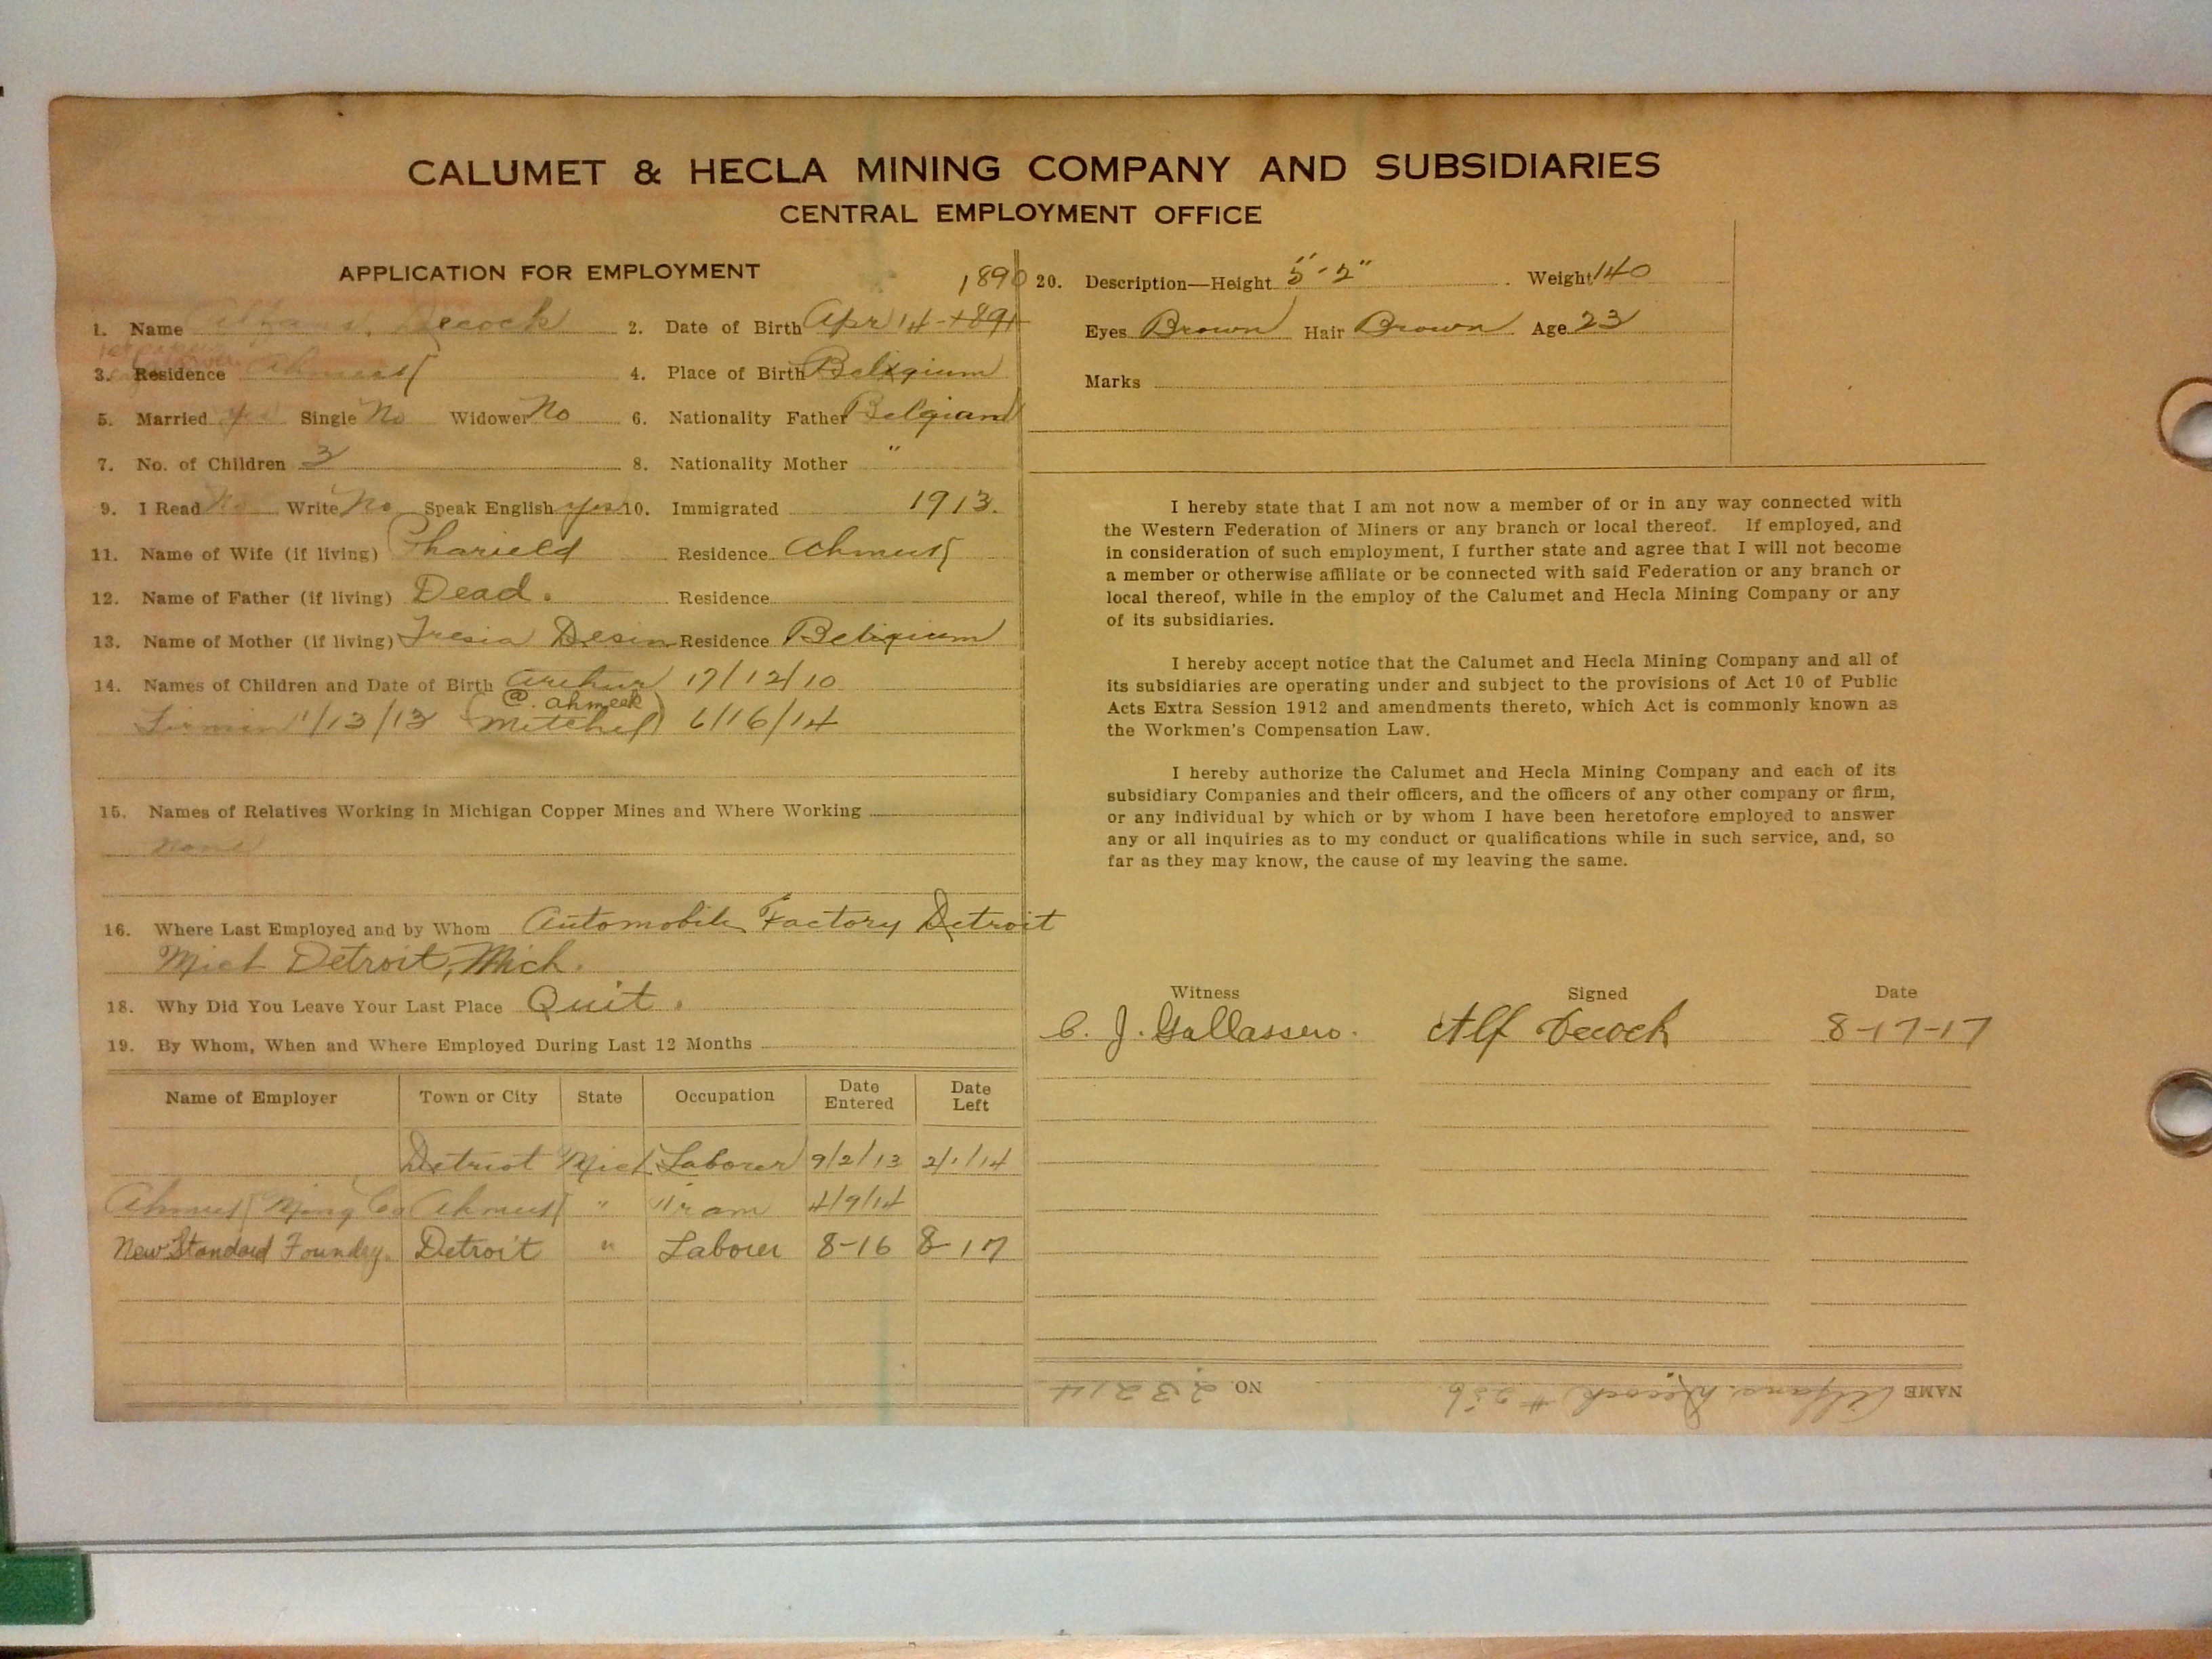 CALUMET & HECLA MINING COMPANY AND SUBSIDIARIES
CENTRAL EMPLOYMENT OFFICE
APPLICATION FOR EMPLOYMENT
1890
1. Name Decock 2. Date of Birth Apr 14 - 1891
3. Residence 4. Place of Birth Beligium
5. Married Yes Single No Widower No 6. Nationality Father Belgian
7. No. of Children 3 8. Nationality Mother "
9. I Read No Write No Speak English Yes 10. Immigrated 1913.
11. Name of Wife (if living) Residence
12. Name of Father (if living) Dead. Residence
13. Name of Mother (if living) Tresia Residence Beligium
14. Names of Children and Date of Birth Arthur 17/12/10
@. Ahmeek
Firmin 1/13/13 (Mitchel) 6/16/14
15. Names of Relatives Working in Michigan Copper Mines and Where Working
None
16. Where Last Employed and by Whom Automobile Factory Detroit
Mich Detroit, Mich.
18. Why Did You Leave Your Last Place Quit.
19. By Whom, When and Where Employed During Last 12 Months
Name of Employer Town or City State Occupation Date Entered Date Left
Detriot Mich Laborer 9/2/13 2/1/14
Co " Tram 4/9/14
New Standard Foundry. Detroit " Laborer 8-16 8-17
20. Description—Height 5'-2" Weight 140
Eyes Brown Hair Brown Age 23
Marks
I hereby state that I am not now a member of or in any way connected with
the Western Federation of Miners or any branch or local thereof. If employed, and
in consideration of such employment, I further state and agree that I will not become
a member or otherwise affiliate or be connected with said Federation or any branch or
local thereof, while in the employ of the Calumet and Hecla Mining Company or any
of its subsidiaries.
I hereby accept notice that the Calumet and Hecla Mining Company and all of
its subsidiaries are operating under and subject to the provisions of Act 10 of Public
Acts Extra Session 1912 and amendments thereto, which Act is commonly known as
the Workmen's Compensation Law.
I hereby authorize the Calumet and Hecla Mining Company and each of its
subsidiary Companies and their officers, and the officers of any other company or firm,
or any individual by which or by whom I have been heretofore employed to answer
any or all inquiries as to my conduct or qualifications while in such service, and, so
far as they may know, the cause of my leaving the same.
Witness Signed Date
J. Gallassero. Alf Decock 8-17-17
NAME Decock #256 NO 23214